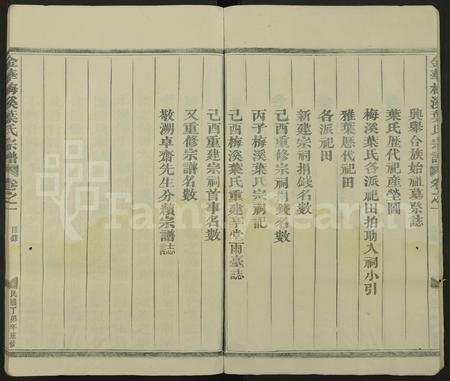 金華梅溪葉氏宗譜 卷之一
興舉合族始祖墓祭誌
葉氏歷代祀產塋圖
梅溪葉氏各派祀田拍助入祠小引
雅葉歷代祀田
各派祀田
新建宗祠捐錢名數
己酉重修宗祠捐錢名數
丙子梅溪葉氏宗祠記
己酉梅溪葉氏重建享堂雨臺誌
己酉重建宗祠首事名數
又重修宗譜名數
敬溯卓齋先生分續宗譜誌
金華梅溪葉氏宗譜 卷之一 目錄 民國丁卯年重修
FamilySearch